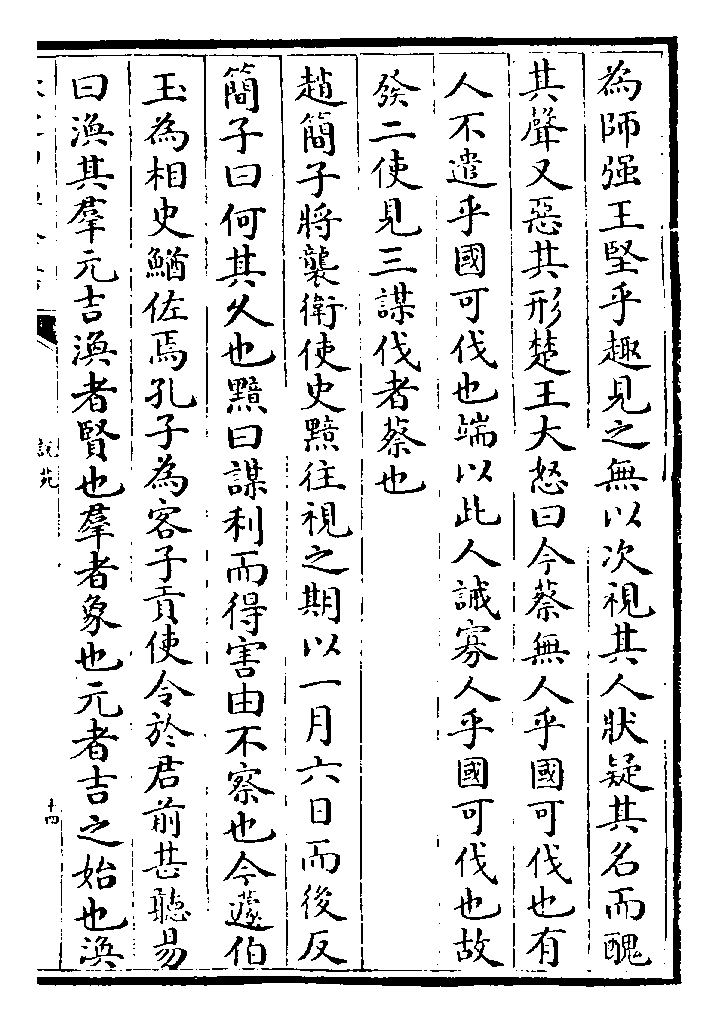 為師强王堅乎趣見之無以次視其人狀疑其名而醜
其聲又惡其形楚王大怒曰今蔡無人乎國可伐也有
人不遣乎國可伐也端以此人誡寡人乎國可伐也故
發二使見三謀伐者蔡也
趙簡子將襲衛使史黯往視之期以一月六日而後反
簡子曰何其久也黯曰謀利而得害由不察也今蘧伯
玉為相史鰌佐焉孔子為客子貢使令於君前甚聽易
曰渙其羣元吉渙者賢也羣者象也元者吉之始也渙
說苑
十四